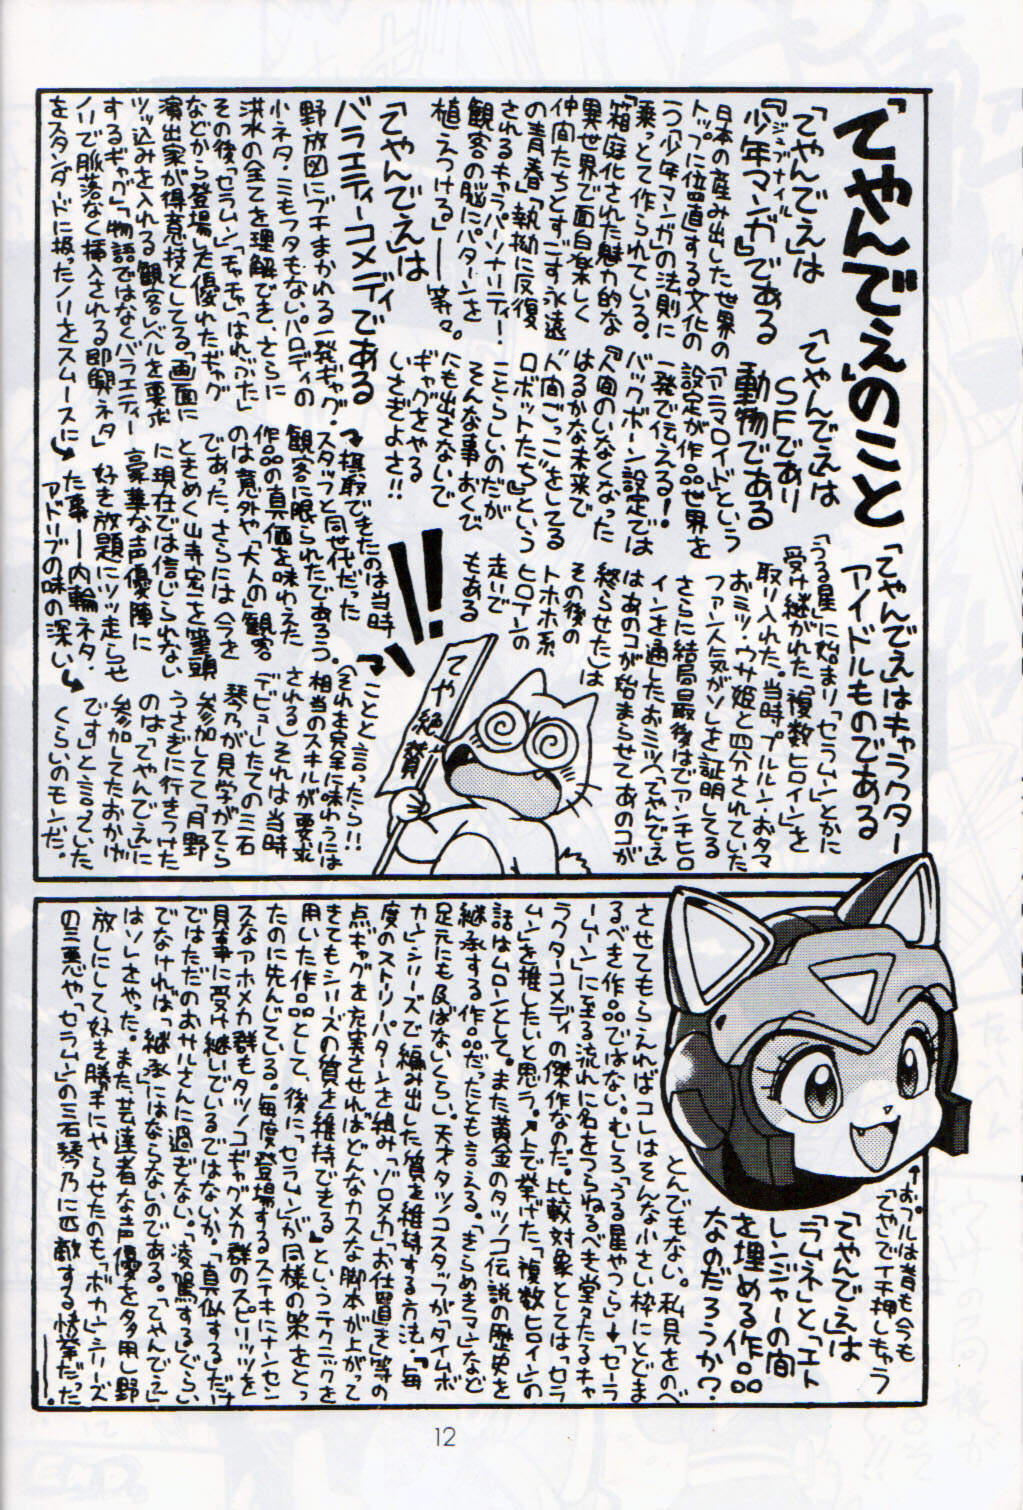 「てやんでぇ」のこと
「てやんでぇ」は
『少年マンガ』である
ジュブナイル
日本の産み出した世界の
トップに位置する文化の
うつ「少年マンガ」の法則に
乗っとて作られている。
「箱庭化された魅力的な
異世界で面白楽しく
仲間たちとすごす永遠
の青春」「執拗に反復
されるキャラパーソナリティー！
観客の脳にパターンを
植えつける」――等々。
「てやんでぇ」は
SFであり
動物である
「アニマロイド」という
設定が作品世界を
一発で伝える！
バックボーン設定では
『人間のいなくなった
はるかな未来で
“人間ごっこ”をしてる
ロボットたち』という
ことらしいのだが
そんな事おくび
にも出さないで
ギャグをやる
いさぎよさ!!
「てやんでぇ」はキャラクター
アイドルものである
「うる星」に始まり「セラムン」とかに
受け継がれた「複数ヒロイン」を
取り入れた。当時プルルン・おタマ
おミツ・ウサ姫と四分されていた
ファン人気がソレを証明してる
さらに結局最後はアンチヒロ
インを通したおミツ（「てやんでぇ」
はあのコが始まらせてあのコが
終らせた）は
その後の
トホホ系
ヒロインの
走りで
もある
「てやんでぇ」は
バラエティーコメディである
野放図にブチまかれる一発ギャグ・
小ネタ・ミもフタもないパロディの
洪水の全てを理解でき、さらに
その後「セラムン」「チャチャ」「はれぶた」
などから登場した優れたギャグ
演出家が得意技としてる「画面に
ツッ込みを入れつる観客レベルを要求
するギャグ」「物語ではなくバラエティー
ノリで脈落なく挿入される即興ネタ」
をスタンダードに扱ったノリをスムースに↘
→摂取できたのは当時
スタッフと同世代だった
観客に限られたであろう。
作品の真価を味わえた
のは意外や「大人の」観客
であった。さらには今を
ときめく山寺宏一を筆頭
に現在では信じられない
豪華な声優陣に
好き放題にツッ走らせ
た事――内輪ネタ・
アドリブの味の深い↘
→ことと言ったら!!
（それを完全に味わうには
相当のスキルが要求
される）それは当時
デビューしたての三石
琴乃が見学がてら
参加してて「月野
うさぎに行きつけた
のは「てやんでぇ」に
参加してたおかげ
です」と言えていた
くらいのモンだ。
!!
てや絶賛
↑おプルは昔も今も
「てやで」イチ押しもキャラ
「てやんでぇ」は
「ラムネ」と「エト
レンジャー」の間
を埋める作品
なのだろうか？
とんでもない。私見をのべ
させてもらえればコレはそんな小さい枠にとどま
るべき作品ではない。むしろ「うる星やつら」→「セーラ
ームーン」に至る流れに名をつらねるべき堂々たるキャ
ラクターコメディの傑作なのだ。比較対象としては「セラ
ムン」を推したいと思う。↗上で挙げた「複数ヒロイン」の
話はムロンとして。また黄金のタツノコ伝説の歴史を
継承する作品だったとも言える。「きらめきマン」など
足元にも及ばないくらい。天オタツノコスタッフが「タイムボ
カン」シリーズで編み出した質を維持する方法・「毎
度のストーリーパターンを組み「ゾロメカ」「お仕置き」等の
点ギャグを充実させればどんなカスな脚本が上がって
きてもシリーズの質を維持できる」というテクニックを
用いた作品として、後に「セラムン」が同様の策をとっ
たのに先んじている。毎度登場するステキにナンセン
スなアホメカ群もタツノコギャグメカ群のスピリッツを
見事に受け継いでいるではないか。「真似する」だけ
ではただのおサルさんに過ぎない。「凌駕する」ぐらい
でなければ「継承」にはならないのである。「てやんでぇ」
はソレをやった。また芸達者な声優を多用し野
放しにして好き勝手にやらせたのも「ボカン」シリーズ
の三悪や「セラムン」の三石琴乃に匹敵する快挙だった
――。
12